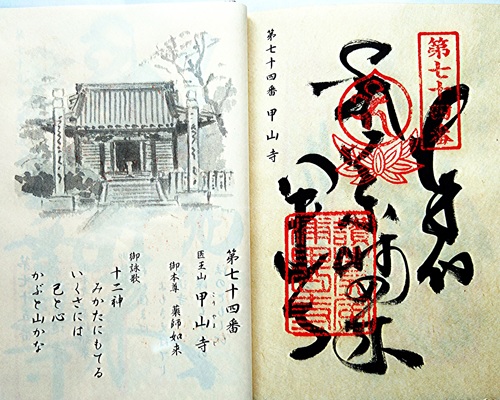 第七十四番
奉納
薬師如来
甲山寺
第七十四番 甲山寺
第七十四番
医王山 甲山寺
御本尊 薬師如来
御詠歌
十二神
みかたにもてる
いくさには
己と心
かぶと山かな